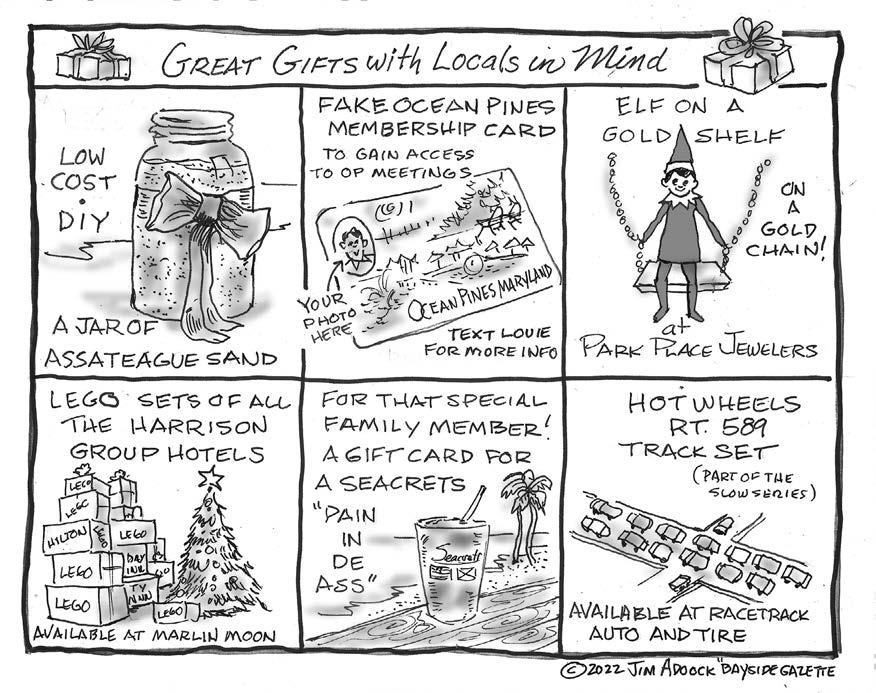 GREAT GIFTS with LOCALS in MIND
LOW
COST
DIY
A JAR OF
ASSATEAGUE SAND
FAKE OCEAN PINES
MEMBERSHIP CARD
TO GAIN ACCESS
TO OP MEETINGS
YOUR
PHOTO
HERE
OCEAN PINES MARYLAND
TEXT LOUIE
FOR MORE INFO
ELF ON A
GOLD SHELF
ON
A
GOLD
CHAIN!
at
PARK PLACE JEWELERS
LEGO SETS OF ALL
THE HARRISON
GROUP HOTELS
LEGO
LEGO
HILTON
LEGO
LEGO
LEGO
LEGO
LEGO
AVAILABLE AT MARLIN MOON
FOR THAT SPECIAL
FAMILY MEMBER!
A GIFT CARD FOR
A SEACRETS
"PAIN
IN
DE
ASS"
Seacrets
HOT WHEELS
RT. 589
TRACK SET
(PART OF THE
SLOW SERIES)
AVAILABLE AT RACETRACK
AUTO AND TIRE
©2022 JIM ADCOCK "BAYSIDE GAZETTE